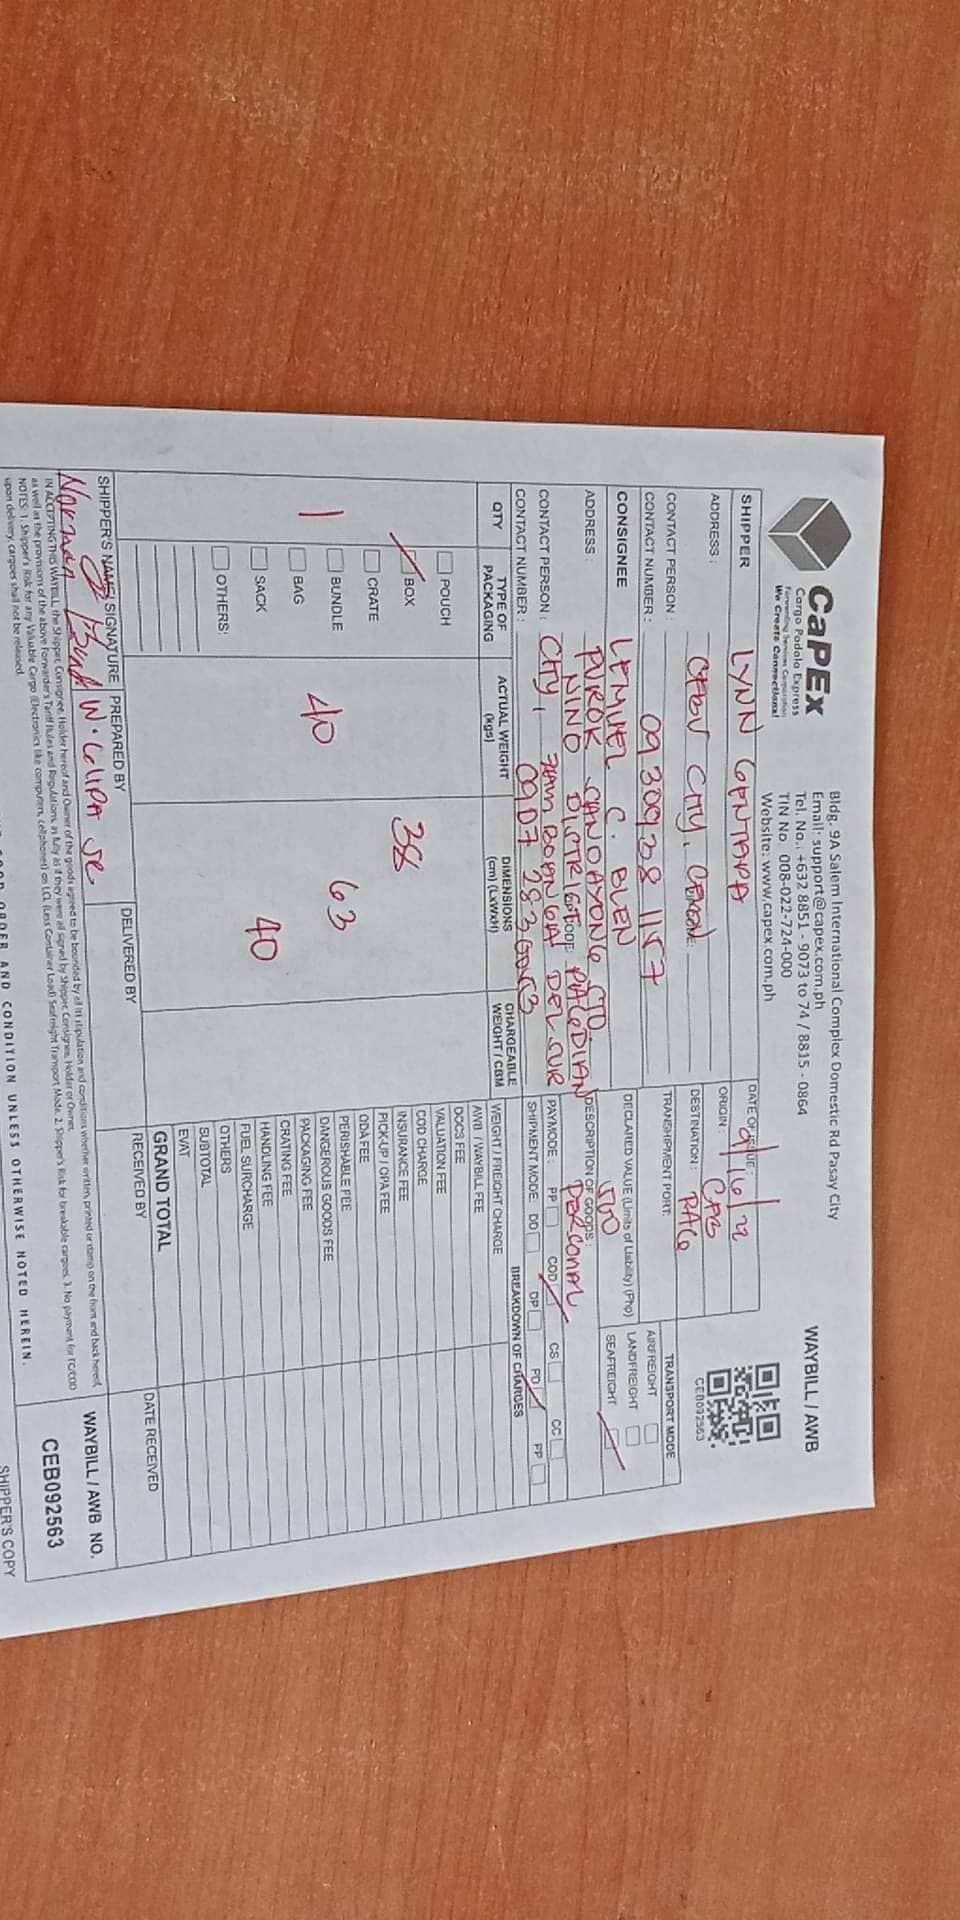 CAPEX
Cargo Padala Express
Forwarding Services Corporation
We Create Connections!
Bldg. 9A Salom International Complex Domestic Rd Pasay City
Email: support@capex.com.ph
Tel. No.: +632 8851 - 9073 to 74 / 8815 - 0864
TIN No. 008-022-724-000
Website: www.capex.com.ph
WAYBILL / AWB
CEB092563
SHIPPER LYNN GENTAPA
ADDRESS: CEBU CITY, CEBU
CONTACT PERSON:
CONTACT NUMBER: 09309381157
CONSIGNEE LEMUEL C. BLEN
ADDRESS: PUROK CANDAYONG STO
NINO DISTRICT PAGADIAN
CONTACT PERSON: CITY, ZAMBOANGA DEL SUR
CONTACT NUMBER: 0907 283
DATE OF ISSUE: 9/16/22
ORIGIN: CEB
DESTINATION: PAG
TRANSHIPMENT PORT:
DECLARED VALUE (Limits of Liability) (Php)
500
DESCRIPTION OF GOODS:
PERSONAL
TRANSPORT MODE
AIRFREIGHT
LANDFREIGHT
SEAFREIGHT
PAYMODE: PP COD CS CC
SHIPMENT MODE: DD DP PD PP
QTY
TYPE OF PACKAGING
ACTUAL WEIGHT (kgs)
DIMENSIONS (cm) (LxWxH)
CHARGEABLE WEIGHT / CBM
BREAKDOWN OF CHARGES
POUCH
BOX
CRATE
BUNDLE
BAG
SACK
OTHERS:
1
40
38
63
40
WEIGHT / FREIGHT CHARGE
AWB / WAYBILL FEE
DOCS FEE
VALUATION FEE
COD CHARGE
INSURANCE FEE
PICK-UP / OPA FEE
ODA FEE
PERISHABLE FEE
DANGEROUS GOODS FEE
PACKAGING FEE
CRATING FEE
HANDLING FEE
FUEL SURCHARGE
OTHERS
SUBTOTAL
EVAT
GRAND TOTAL
SHIPPER'S NAME/ SIGNATURE
PREPARED BY
DELIVERED BY
RECEIVED BY
DATE RECEIVED
Norman
IN ACCEPTING THIS WAYBILL, the Shipper, Consignee, Holder hereof and Owner of the goods agreed to be bounded by all its stipulation and conditions whether written, printed or stamp on the front and back hereof,
as well as the provisions of the above Forwarder's Tariff Rules and Regulations, as fully as if they were all signed by Shipper, Consignee, Holder or Owner.
NOTES: 1. Shipper's Risk for any Valuable Cargo (Electronics like computers, cellphones) on LCL (Less Container Load) Seafreight Transport Mode. 2. Shipper's Risk for breakable cargoes. 3. No payment for FC/COD
upon delivery, cargoes shall not be released.
WAYBILL / AWB NO.
CEB092563
GOOD ORDER AND CONDITION UNLESS OTHERWISE NOTED HEREIN.
SHIPPER'S COPY